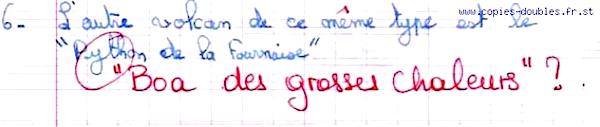 www.copies-doubles.fr.st
6- L'autre volcan de ce même type est le
"Python de la Fournaise"
"Boa des grosses chaleurs" ?